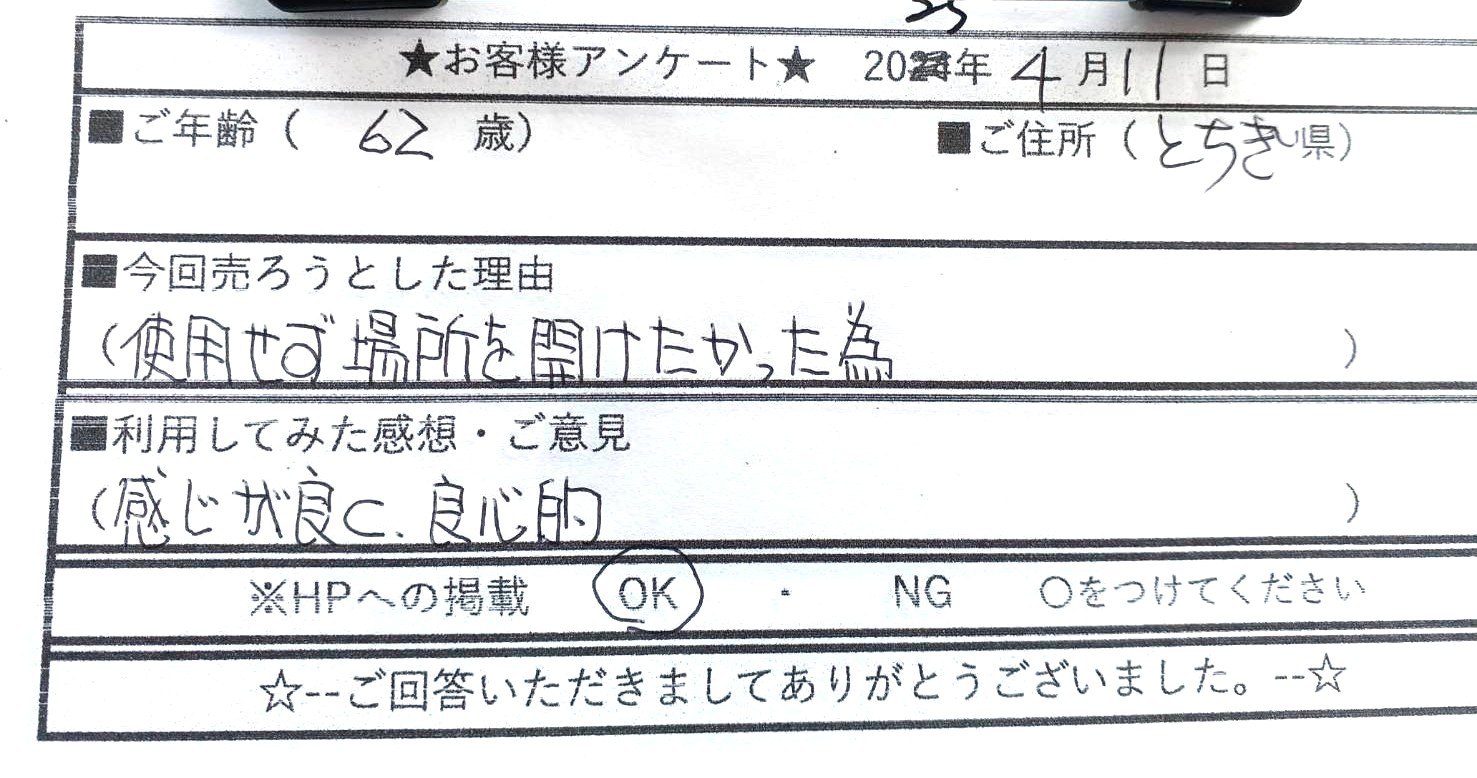 ★お客様アンケート★ 2025年 4月11日
■ご年齢( 62 歳) ■ご住所(とちぎ県)
■今回売ろうとした理由
(使用せず場所を開けたかった為)
■利用してみた感想・ご意見
(感じが良く、良心的)
※HPへの掲載 OK ・ NG ○をつけてください
☆--ご回答いただきましてありがとうございました。--☆